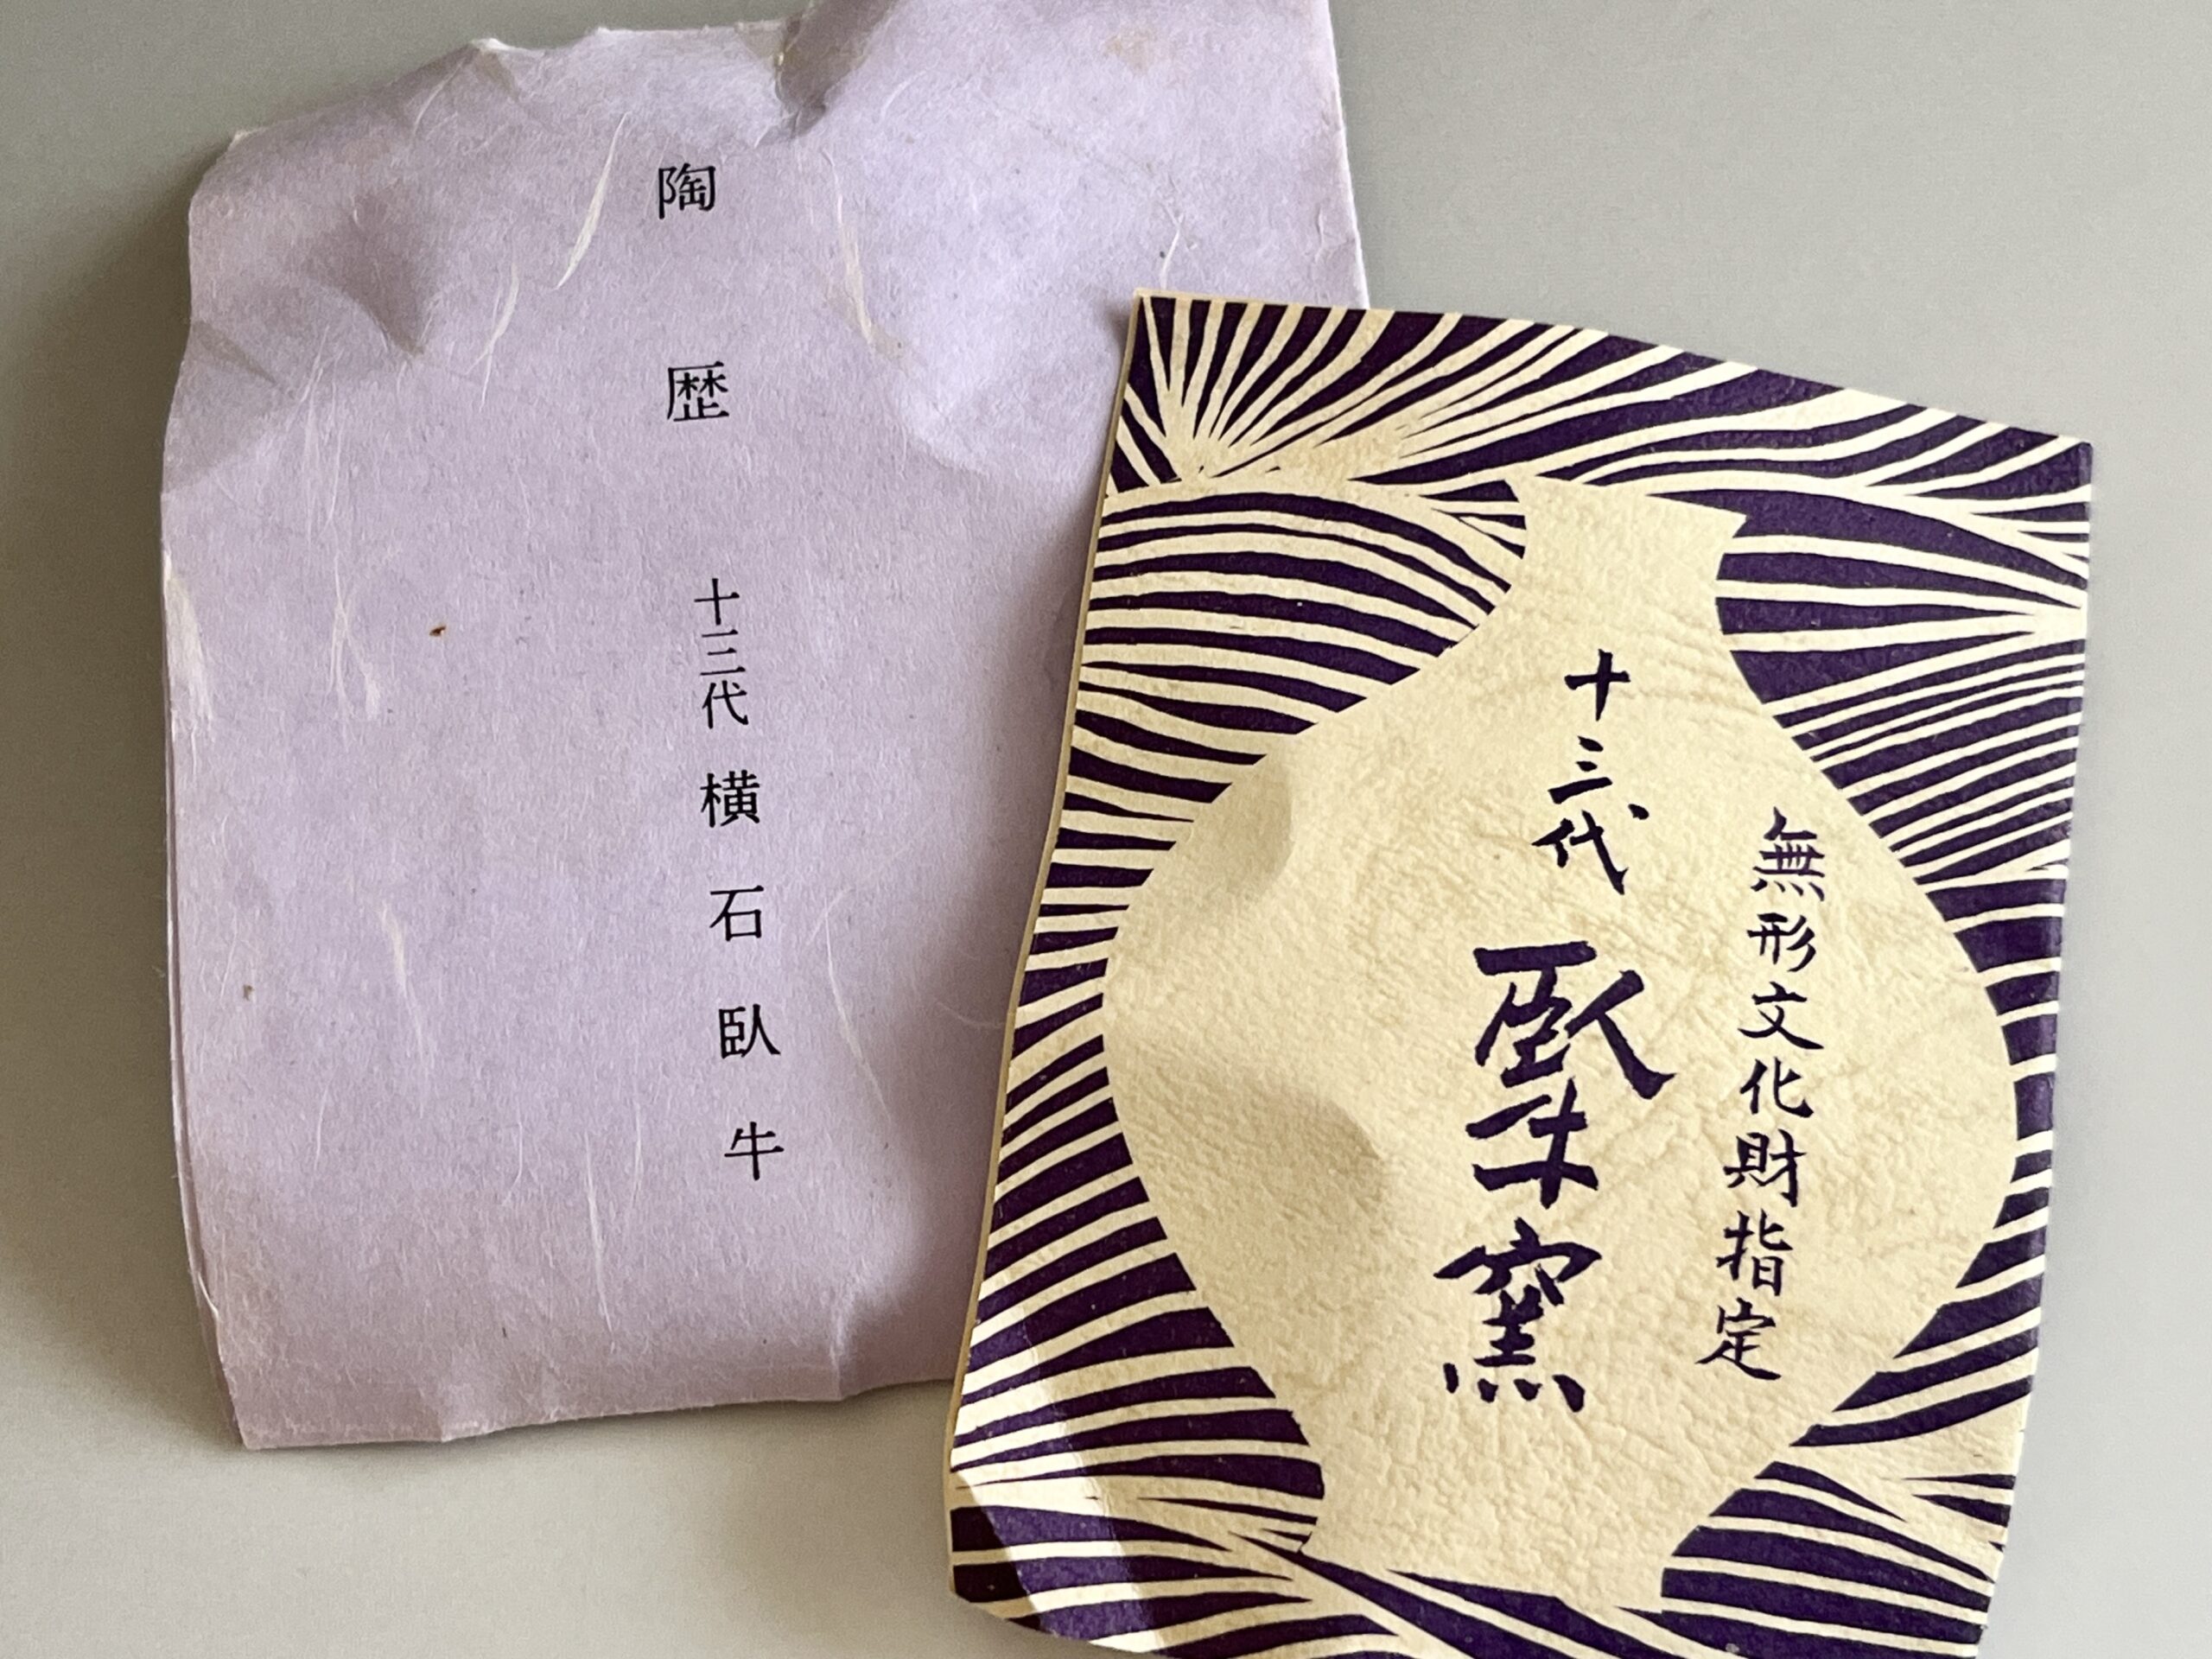 陶歴
十三代 横石臥牛
無形文化財指定
十三代
臥牛窯